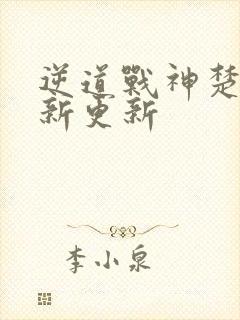 逆道戰神楚
新更新
李小泉